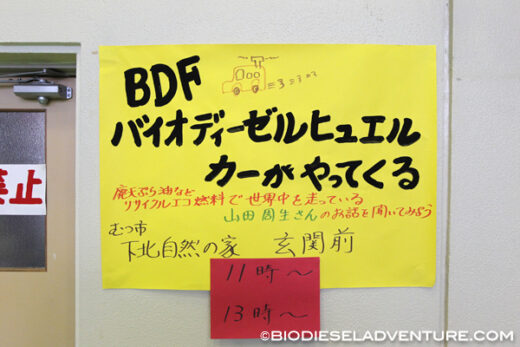 BDF
バイオディーゼルヒュエル
カーがやってくる
廃天ぷら油など
リサイクルエコ燃料で世界中を走っている
山田周生さんのお話を聞いてみよう
むつ市
下北自然の家 玄関前
11時～
13時～
止
©BIODIESELADVENTURE.COM